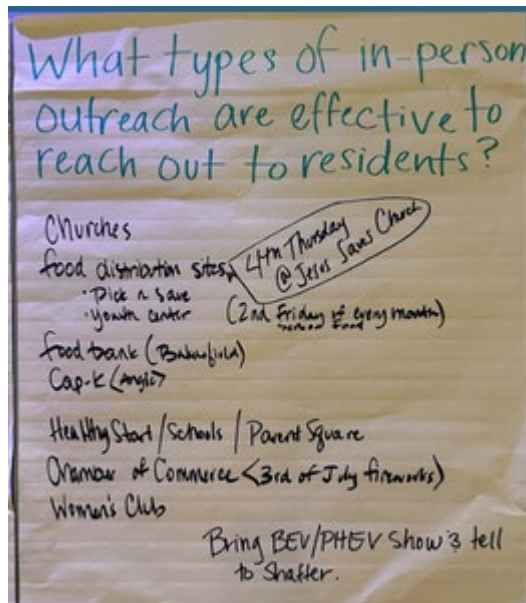 What types of in-person
outreach are effective to
reach out to residents?
Churches
food distribution sites
4th Thursday
@ Jesus Saves Church
• Pick n Save
• Youth center
(2nd Friday of every month)
food bank (Bakersfield)
Cap-K (Angie)
Healthy Start / Schools / Parent Square
Chamber of Commerce (3rd of July fireworks)
Women's Club
Bring BEV/PHEV Show & tell
to Shafter.